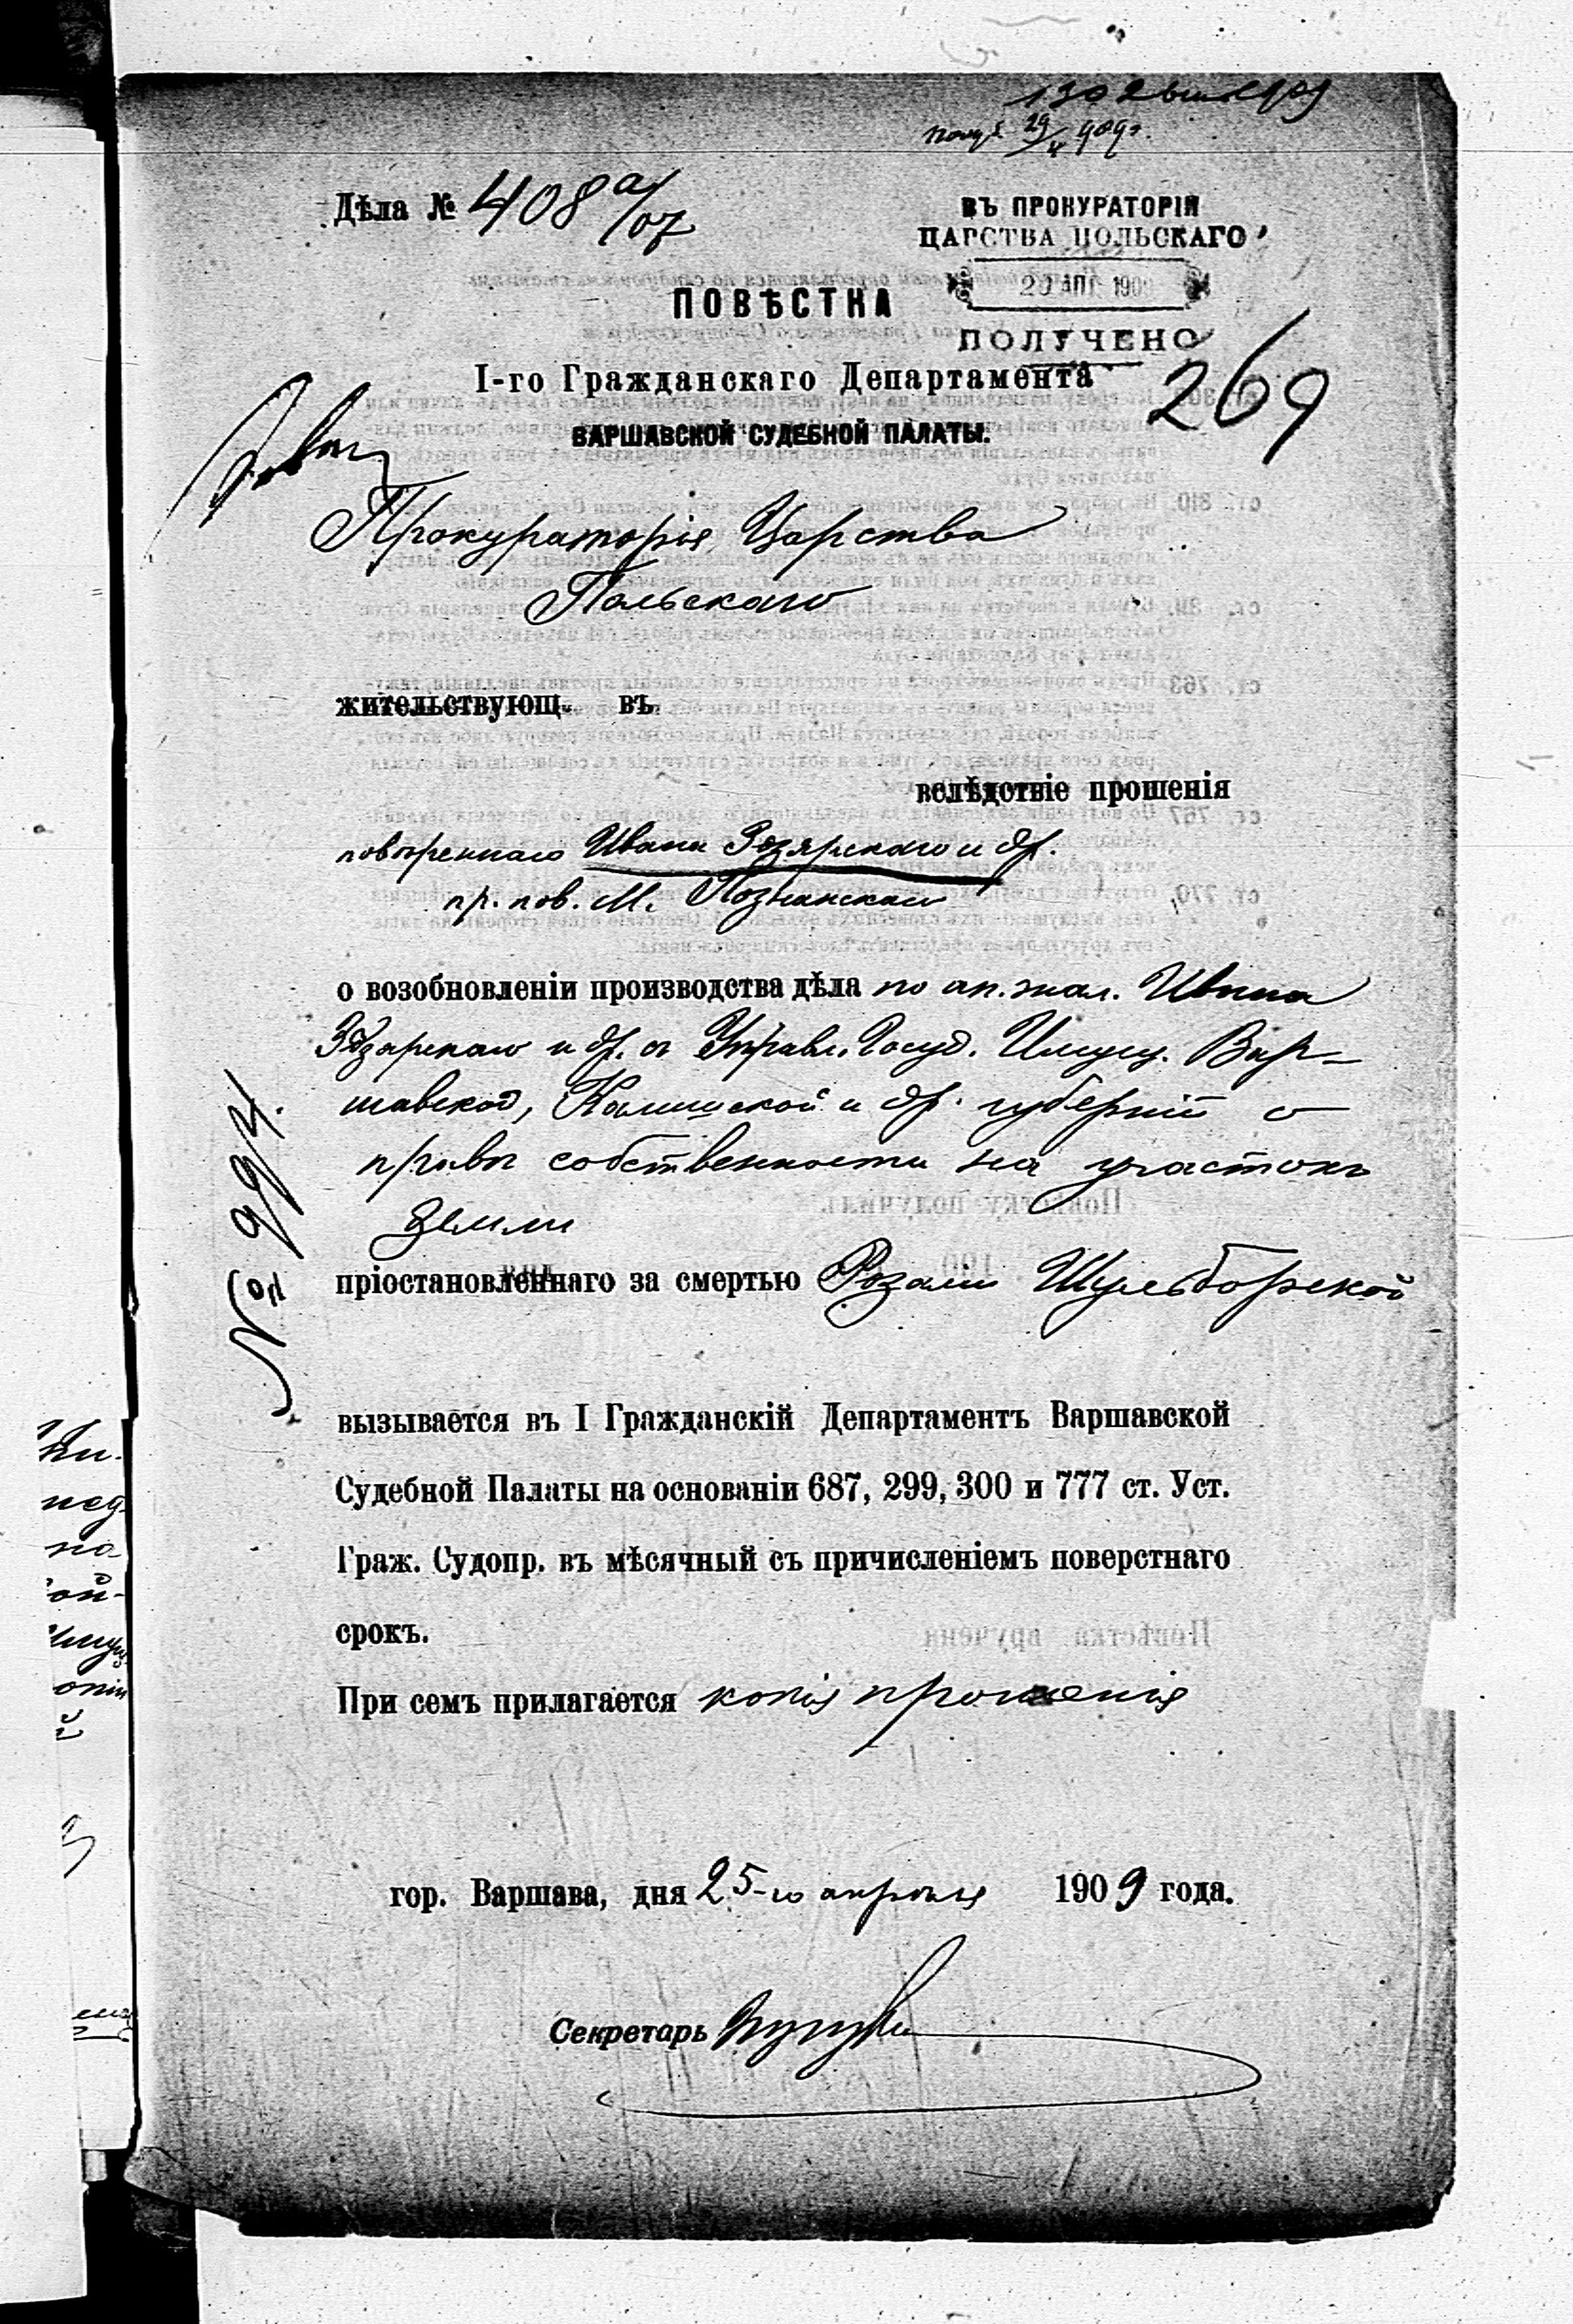 получ. 29/4 909 г.
Дѣла № 408 а/07
ВЪ ПРОКУРАТОРІИ
ЦАРСТВА ПОЛЬСКАГО
29 АПР 1909
ПОЛУЧЕНО
ПОВѢСТКА
І-го Гражданскаго Департамента
269
ВАРШАВСКОЙ СУДЕБНОЙ ПАЛАТЫ.
Прокураторія Царства
Польскаго
жительствующ. въ
вслѣдствіе прошенія
повѣреннаго Ивана и др.
пр. пов. М. Познанскаго
о возобновленіи производства дѣла по ап. жал. Ивана
и др. съ Управл. Госуд. Имущ. Вар-
шавской, Калишской и др. губерній о
правѣ собственности на участокъ
земли
№ 994.
пріостановленнаго за смертью Розаліи Шульборской
вызывается въ І Гражданскій Департаментъ Варшавской
Судебной Палаты на основаніи 687, 299, 300 и 777 ст. Уст.
Граж. Судопр. въ мѣсячный съ причисленіемъ поверстнаго
срокъ.
При семъ прилагается копія прошенія
гор. Варшава, дня 25-го апрѣля 1909 года.
Секретарь